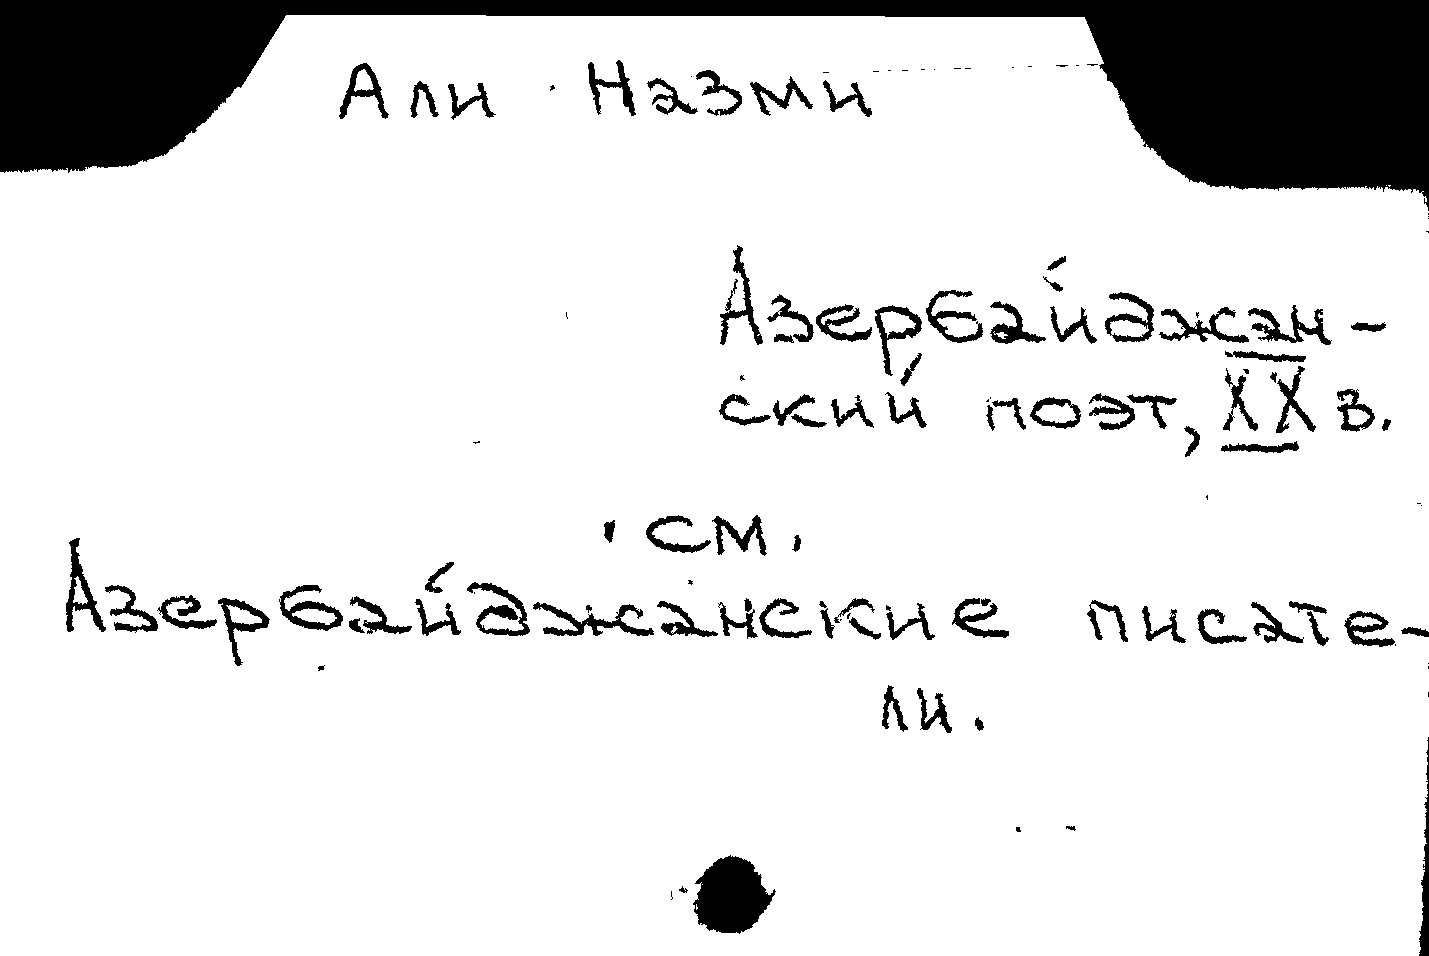 Али Назми
Азербайджан-
ский поэт, XX в.
см.
Азербайджанские писате-
ли.